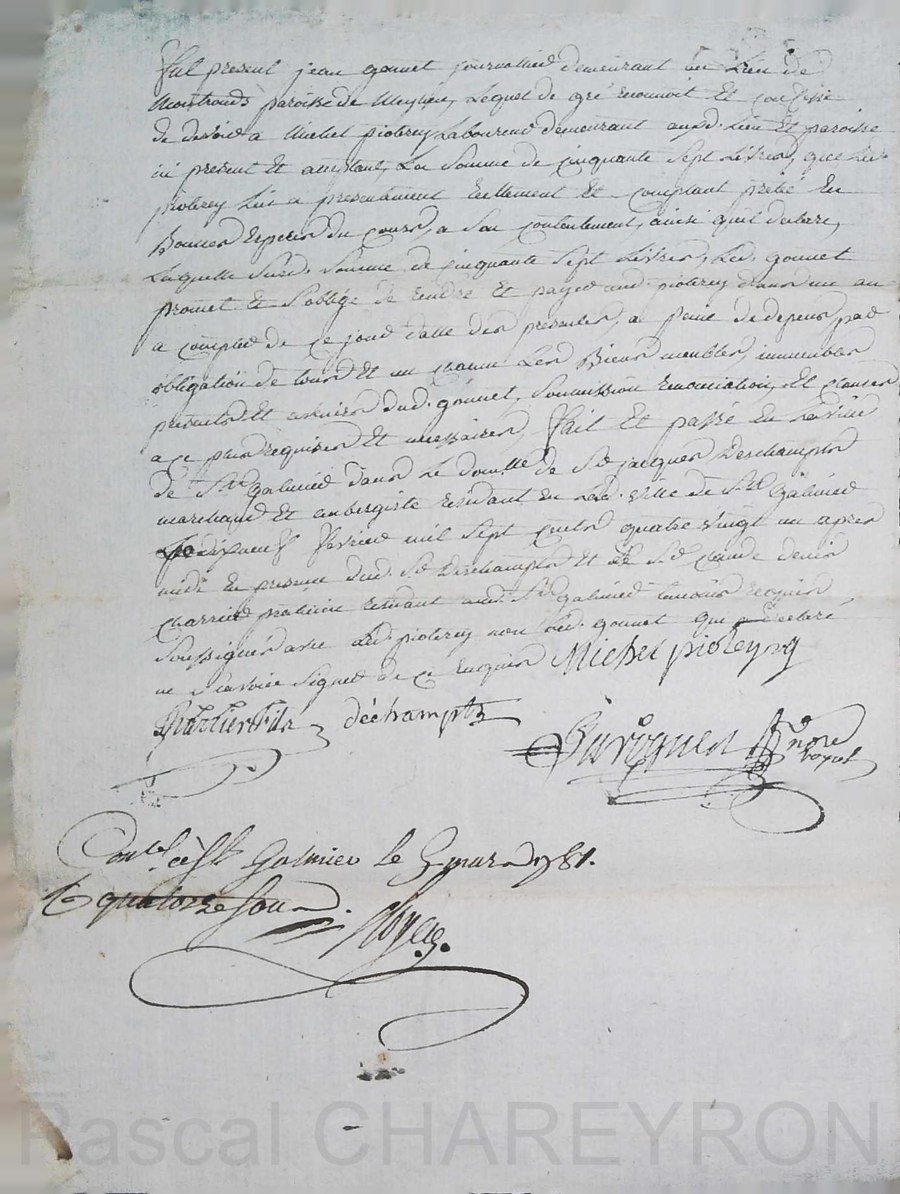 fut present jean gonnet journallier demeurant au Lieu de
Montrond paroisse de Meylieu, Lequel de gré reconnoit Et confesse
de devoir a Michel pioterey Laboureur demeurant aud. Lieu Et paroisse
ici present Et acceptant, La Somme de Cinquante Sept Livres, que led.
pioterey lui a presentement reellement Et Comptant preté En
Bonnes Especes du Cours, a Son Contentement, ainsi quil declare,
Laquelle Susd. Somme de Cinquante Sept Livres, Led. gonnet
promet Et Soblige de rendre Et payer aud. pioterey dans un an
a compter de Ce jour datte des presentes, a peine de depens, par
obligation de tous Et un chacun Les Biens meubles, immeubles
presents Et avenirs dud. gonnet, Soumission renonciation, Et clauses
a ce plus requises Et necessaires, fait Et passé En La ville
de St. Galmier dans Le domicille de Sr. jacques Deschampts
marchand Et aubergiste residant En Lad. ville de St. Galmier
fevrier mil Sept Cents quatre vingt un apres
midi En presence dud. Sr. Deschampts Et de Sr. Claude denis
Charrier praticien residant aud. St. Galmier temoins requis
Soussignés avec Led. pioterey non Led. gonnet qui a declaré
ne Scavoir Signer de Ce Enquis Michel pioterey
Charrier fils déchampts
nore
royal
Conlé. à St. Galmier le 5 mars 1781.
quatorze Sous
Pascal CHAREYRON